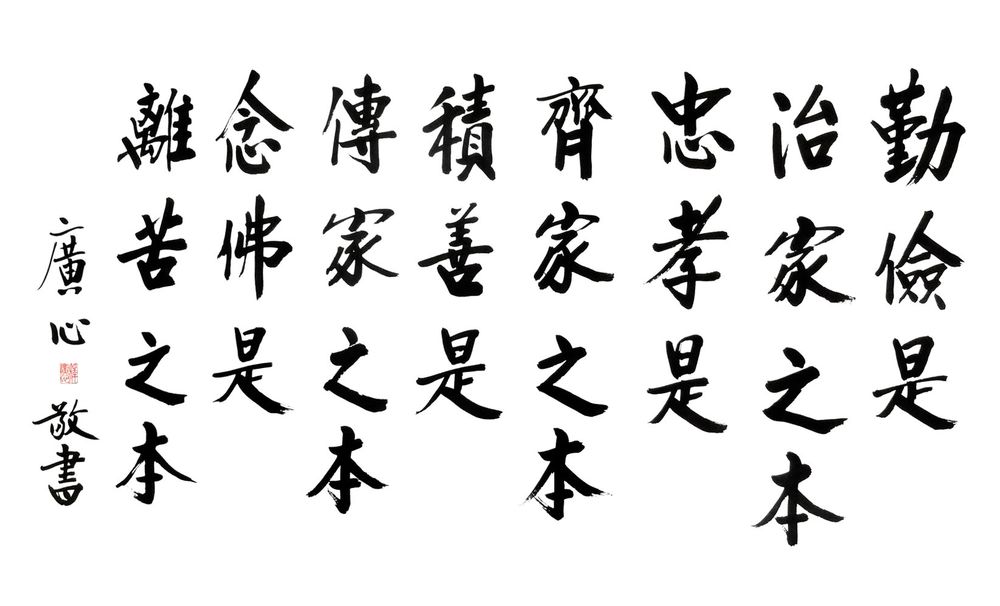 勤儉是
治家之本
忠孝是
齊家之本
積善是
傳家之本
念佛是
離苦之本
廣心
敬書